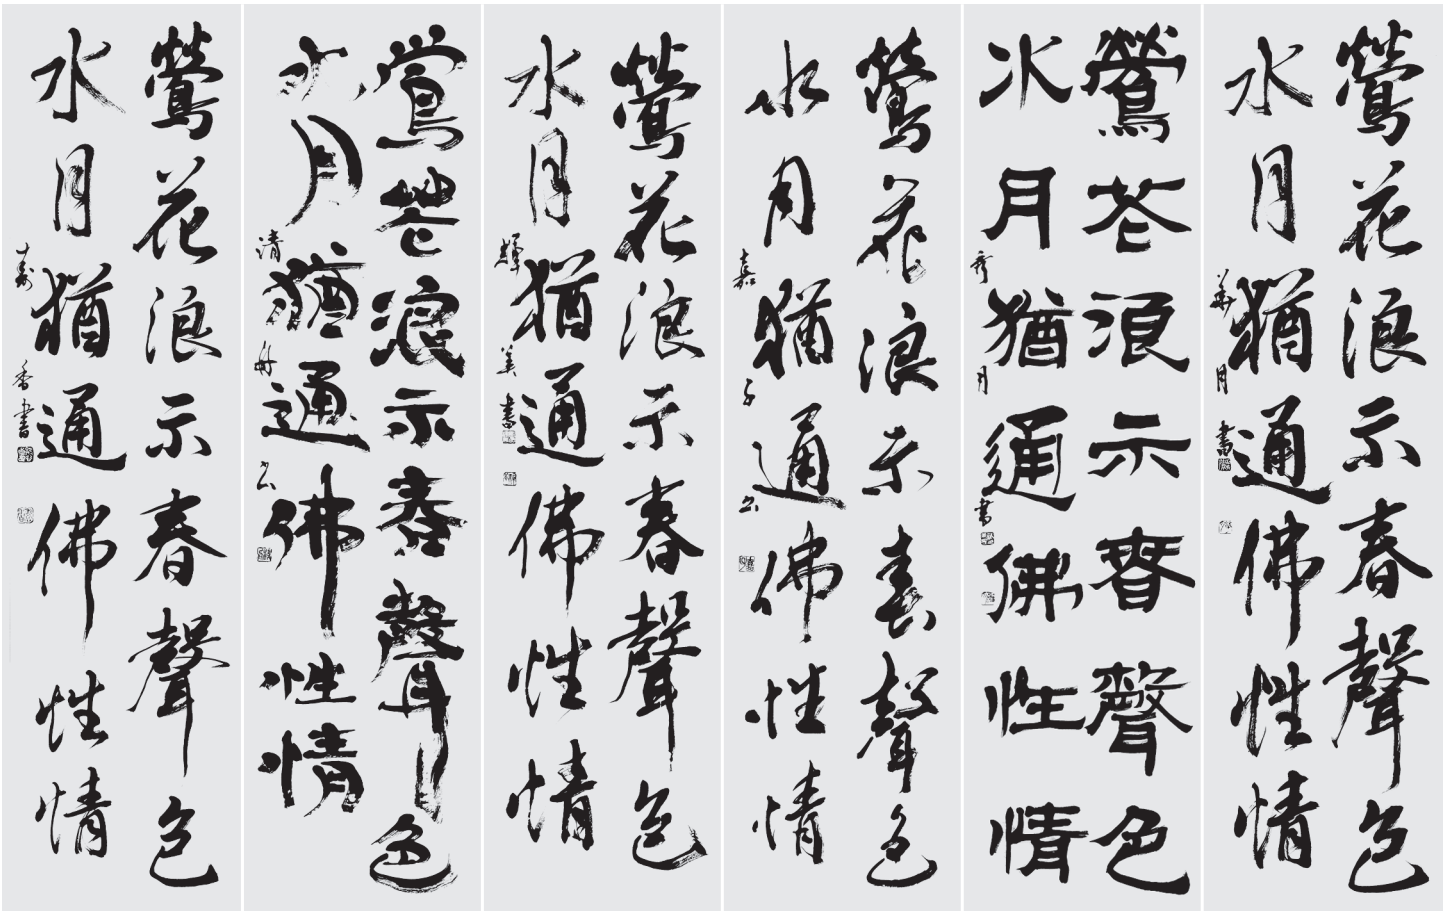 鶯花浪示春聲色
水月猶通佛性情
月書
鶯花浪示春聲色
水月猶通佛性情
秀月書
鶯花浪示春聲色
水月猶通佛性情
嘉子书
鶯花浪示春聲色
水月猶通佛性情
輝美書
鶯花浪示春聲色
水月猶通佛性情
清舟书
鶯花浪示春聲色
水月猶通佛性情
壽香書